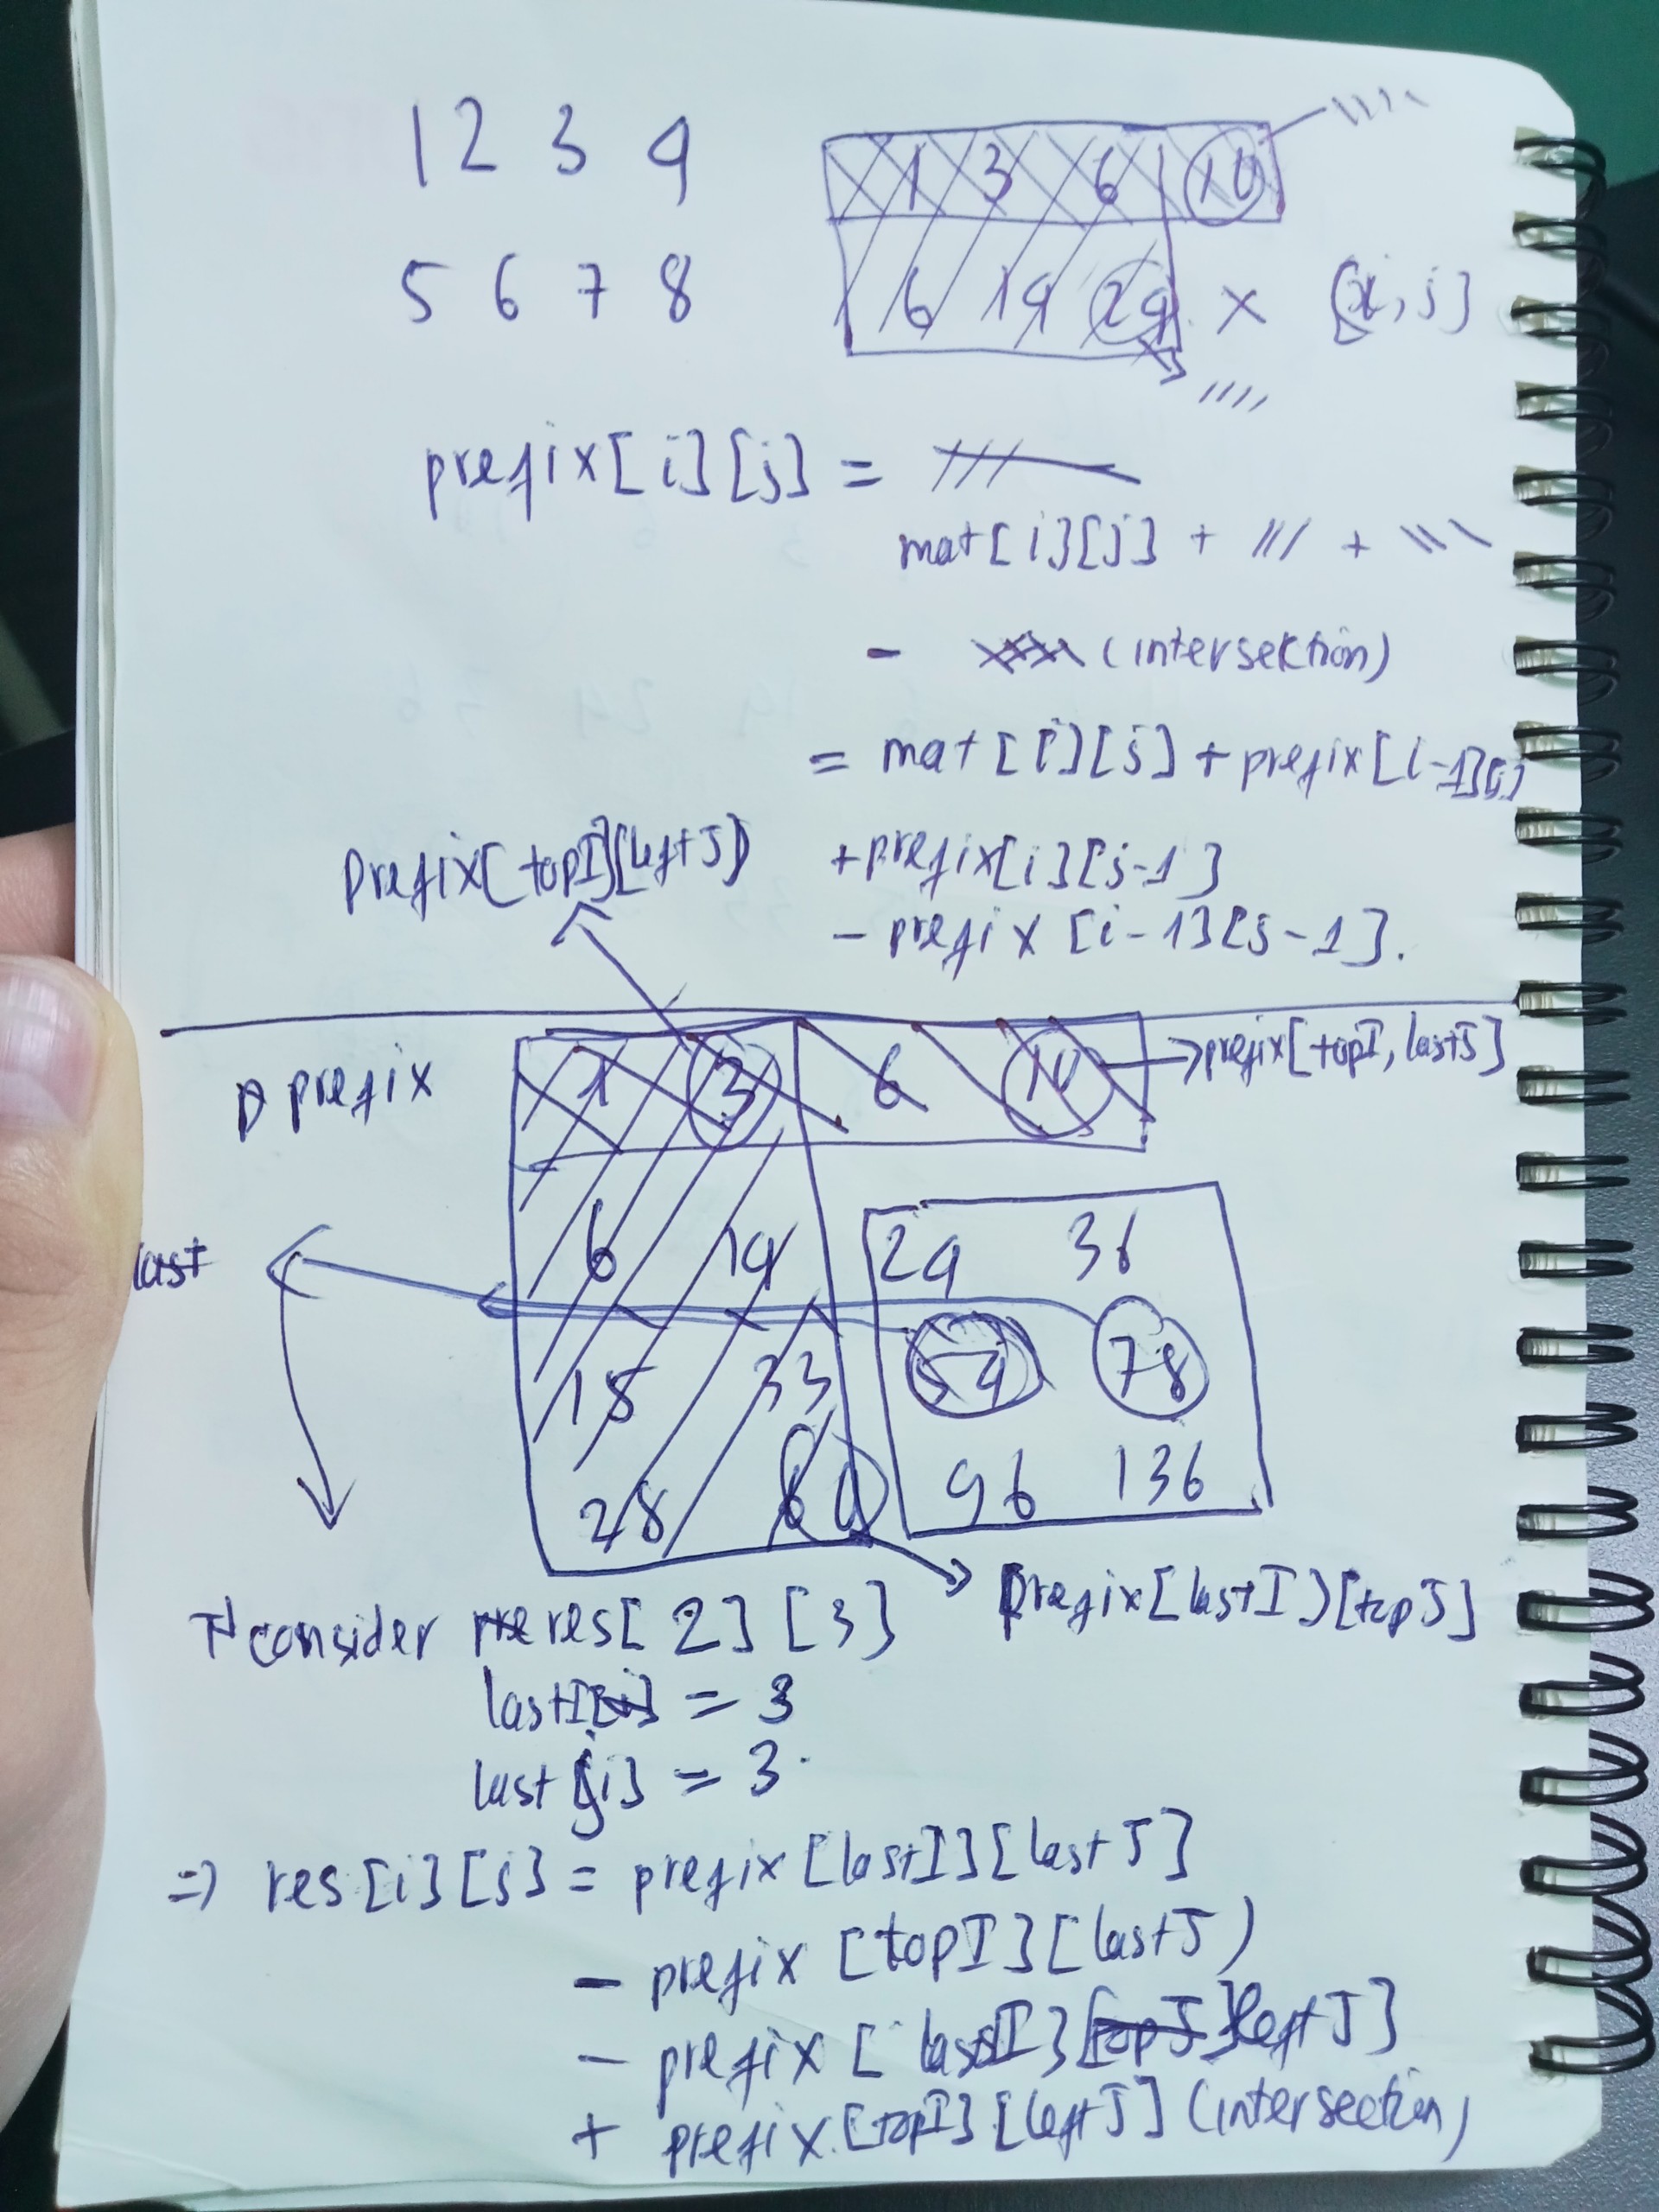 1 2 3 4
5 6 7 8
1 3 6 10
6 14 24 × [i,j]
prefix[i][j] =
mat[i][j] + /// + \\\
- (intersektion)
= mat[i][j] + prefix[i-1][j]
+prefix[i][j-1]
-prefix[i-1][j-1].
Prefix[topI][leftJ]
prefix
1 3 6 10
prefix[topI, lastJ]
6 14 24 36
last
18 33 54 78
28 60 96 136
prefix[lastI][topJ]
consider res[2][3]
lastI = 3
last = 3
=> res[i][j] = prefix[lastI][lastJ]
- prefix [topI][lastJ)
- prefix [lastI][leftJ]
+ prefix.[topI][leftJ] (intersection)